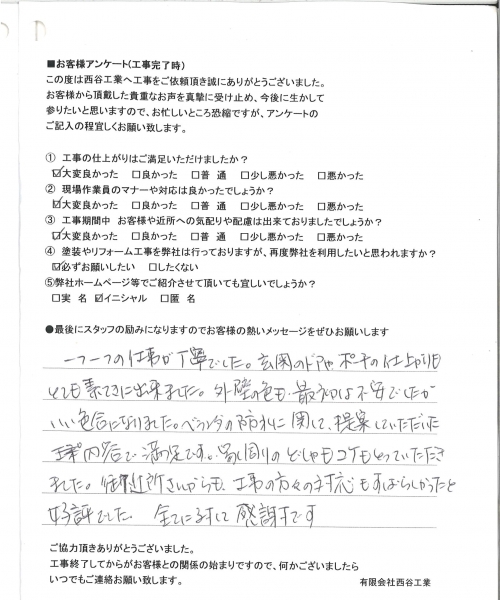 ■お客様アンケート(工事完了時)
この度は西谷工業へ工事をご依頼頂き誠にありがとうございました。
お客様から頂戴した貴重なお声を真摯に受け止め、今後に生かして
参りたいと思いますので、お忙しいところ恐縮ですが、アンケートの
ご記入の程宜しくお願い致します。
① 工事の仕上がりはご満足いただけましたか？
☑大変良かった □良かった □普 通 □少し悪かった □悪かった
② 現場作業員のマナーや対応は良かったでしょうか？
☑大変良かった □良かった □普 通 □少し悪かった □悪かった
③ 工事期間中 お客様や近所への気配りや配慮は出来ておりましたでしょうか？
☑大変良かった □良かった □普 通 □少し悪かった □悪かった
④ 塗装やリフォーム工事を弊社は行っておりますが、再度弊社を利用したいと思われますか？
☑必ずお願いしたい □したくない
⑤弊社ホームページ等でご紹介させて頂いても宜しいでしょうか？
□実 名 ☑イニシャル □匿 名
●最後にスタッフの励みになりますのでお客様の熱いメッセージをぜひお願いします
一つ一つの仕事が丁寧でした。玄関のドアやポーチの仕上がりも
とても素てきに出来ました。外壁の色も最初は不安でしたが
いい色合になりました。ベランダの防水に関して、提案していただいた
工事内容で満足です。家周りのどしゃもコケもとっていただき
ました。御近所さんからも、工事の方々の対応もすばらしかったと
好評でした 全てに対して感謝です
ご協力頂きありがとうございました。
工事終了してからがお客様との関係の始まりですので、何かございましたら
いつでもご連絡お願い致します。
有限会社西谷工業